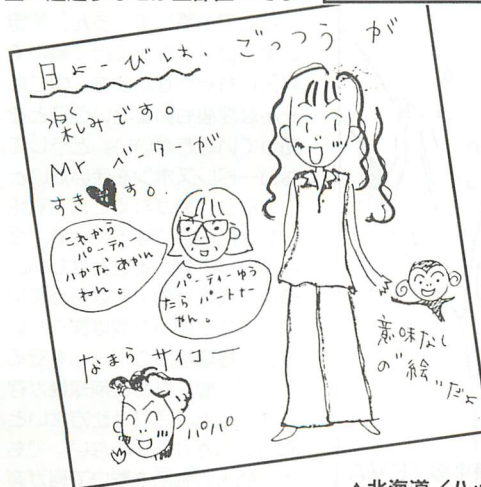 日よーびは、ごっつう が
楽しみです。
MY ベンターが
すき♥す。
これから
パーティー
いかな あかん
ねん。
パーティーゆう
たら パートナー
やん。
なまら サイコー
パパ
意味なし
の"絵"だよ
▲北海道／ハッ